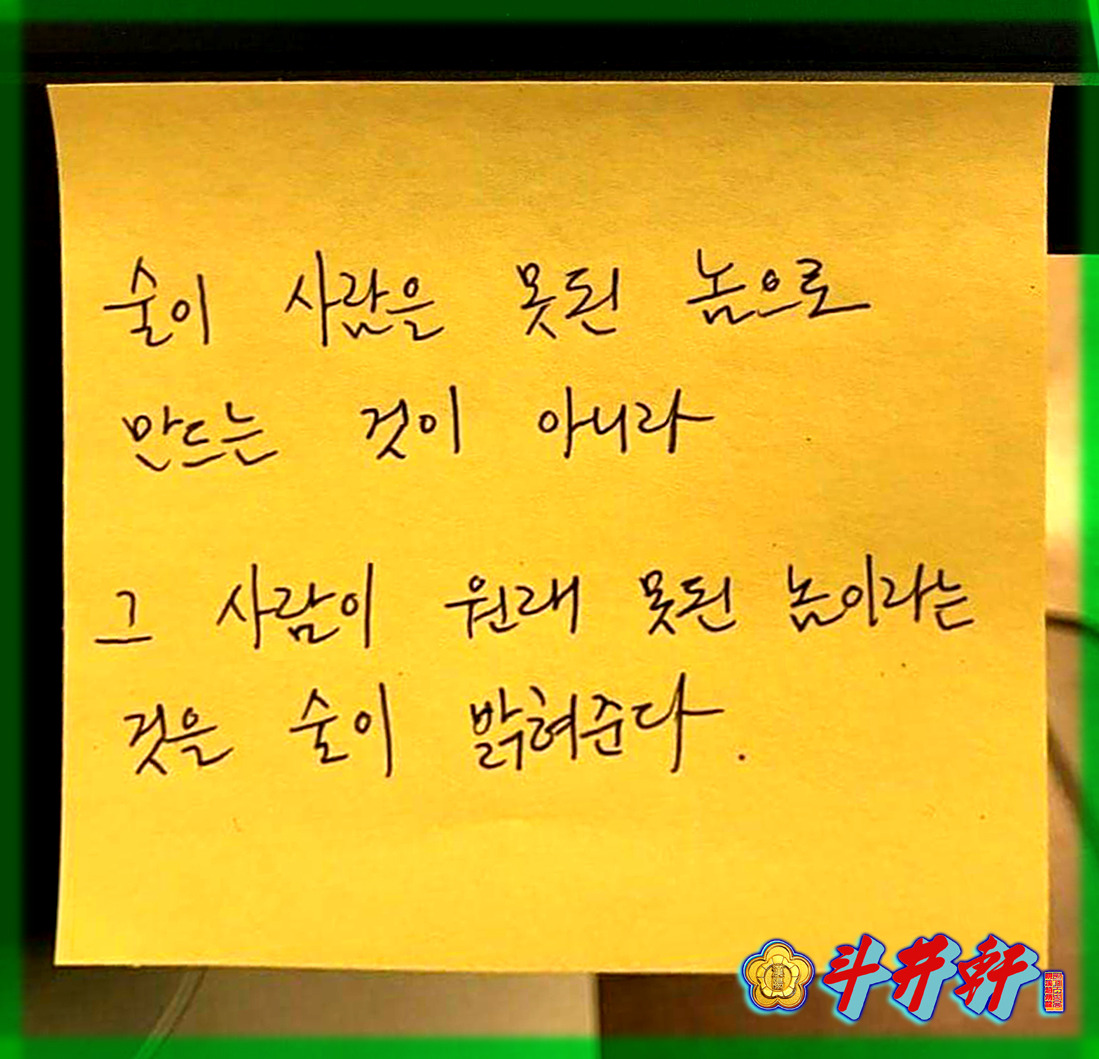 술이 사람은 못된 놈으로
만드는 것이 아니라
그 사람이 원래 못된 놈이라는
것을 술이 밝혀준다.
斗井軒